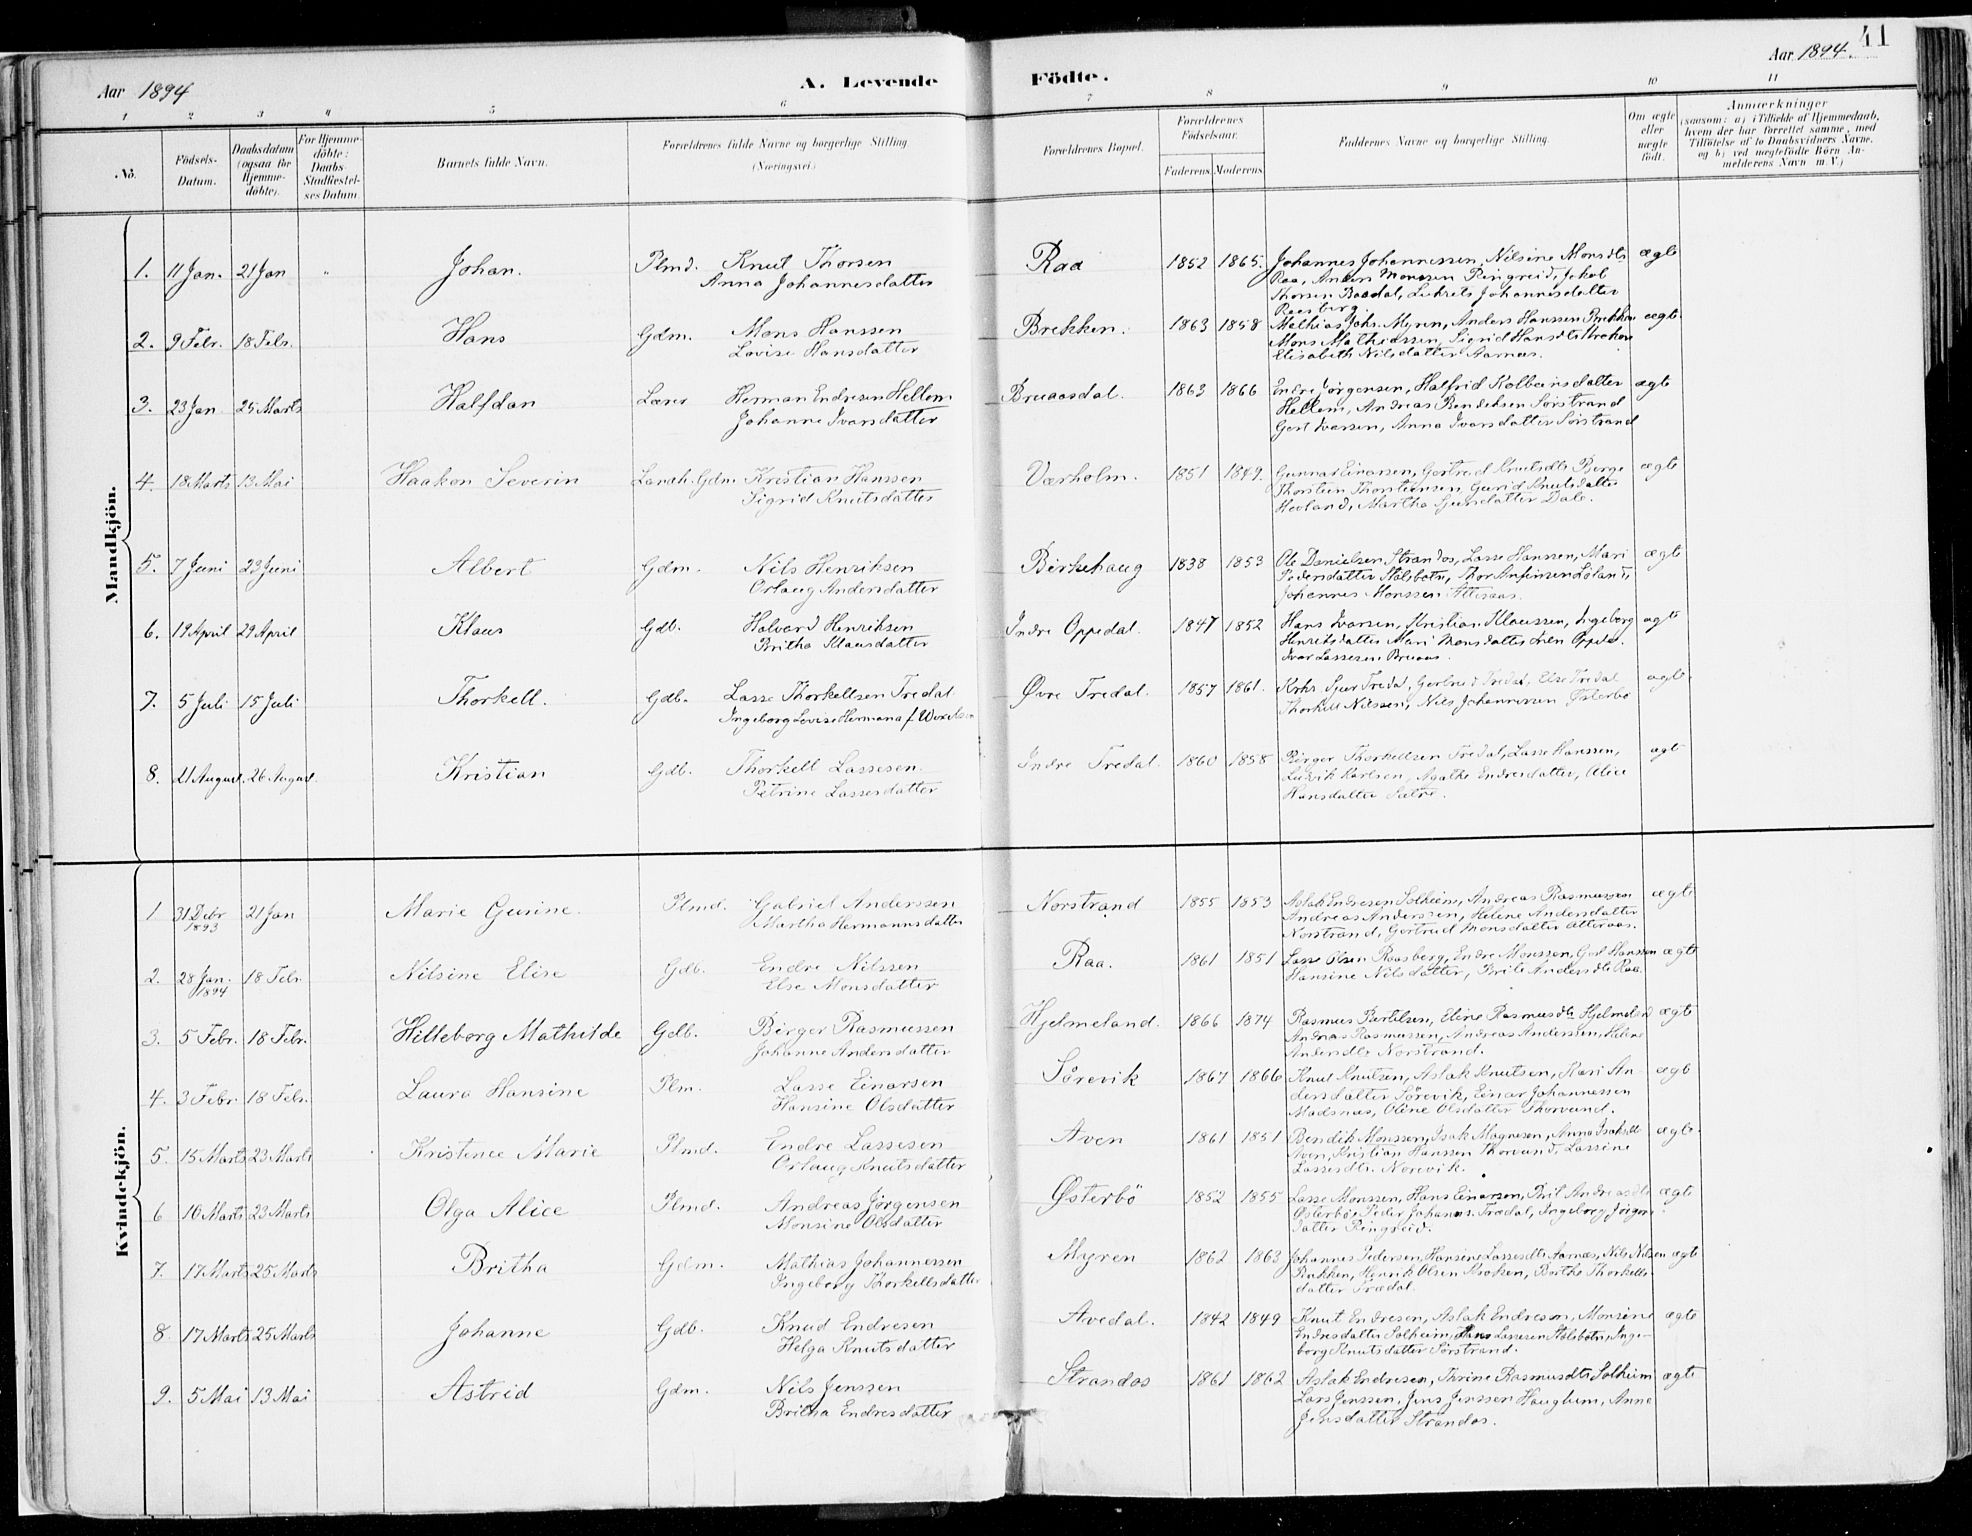 Aar 1894
A. Levende
Födte.
Aar 1894.
41
1 2 3 4 5 6 7 8 9 10 11
No.
Födsels-
Datum.
Daabsdatum
(ogsaa for
Hjemme-
döbte).
For Hjemme-
döbte:
Daabs-
Stadfæstel-
ses Datum
Barnets fulde Navn.
Forældrenes fulde Navne og borgerlige Stilling
(Næringsvei)
Forældrenes Bopæl.
Forældrenes
Födselsaar.
Faderens. Moderens.
Faddernes Navne og borgerlige Stilling.
Om ægte
eller
uægte
födt.
Anmærkninger
(saasom: a) i Tilfælde af Hjemmedaab,
hvem der har forrettet samme, med
Tilföielse af to Daabsvidners Navne,
og b) ved uægtefödte Börn An-
melderens Navn m. V.)
Mandkjön.
1. 11 Jan. 21 Jan " Johan. Plmd. Knut Thorsen Raa 1852 1865. Johannes Johannessen, Nilsine Monsdtr ægte
Anna Johannesdatter Raa, Anders Monssen Ringreid, Jakob
Thorsen Baadal, Lukrets Johannesdatter
Raasberg.
2. 9 Febr. 18 Febr. Hans Gdm. Mons Hanssen Brekken. 1863 1858 Mathias Johs. Myren, Anders Hanssen Brekken ægte
Lovise Hansdatter Mons Mathiassen, Sigrid Hansdtr
Elisabeth Nilsdatter Aarnæs.
3. 23 Jan 25 Marts Halfdan Lærer Herman Endresen Hellem Bruaasdal. 1863 1866 Endre Jørgensen, Halfrid Kolbeinsdatter ægte
Johanne Ivarsdatter Hellem, Andreas Bendiksen Sørstrand
Gert Ivarsen, Anna Ivarsdatter Sørstrand
4. 18 Marts 13 Mai Haakon Severin Landh. Gdm Kristian Hanssen Værholm. 1851 1849. Gunnar Einarsen, Gertrud Knutsdtr Berge ægte
Sigrid Knutsdatter Thorstein Thorsteinsen, Gurid Knutsdatter
Hovland, Martha Sjursdatter Dale.
5. 7 Juni 23 Juni Albert Gdm. Nils Henriksen Birkehaug 1838 1853 Ole Danielsen Strandos, Lasse Hanssen, Mari ægte
Orlaug Andersdatter Pedersdatter Stølsbotn, Thor Anfinsen
Johannes Monssen Atteraas.
6. 19 April 29 April Klaus Gdb. Halvard Henriksen Indre Oppedal. 1847 1852 Hans Ivarsen, Kristian Klaussen, Ingeborg ægte
Britha Klausdatter Henriksdatter Mari Monsdatter Oppedal.
Ivar Lassesen Bruaas.
7. 5 Juli 15 Juli Thorkell. Gdb. Lasse Thorkellsen Tredal Øvre Tredal. 1857 1861. Sjur Tredal, Gertrud Tredal, Else Tredal ægte
Ingeborg Lovise Hermana f. Thorkell Nilssen, Nils Johannessen Østerbø
8. 21 August. 26. August Kristian Gdb. Thorkell Lassesen Indre Tredal. 1860 1858 Birger Thorkellsen Tredal, Lasse Hanssen, ægte
Petrine Lassesdatter Ludvik Karlsen, Agathe Endresdatter, Alice
Hansdatter Sætre.
Kvindekjön.
1 31 Debr 21 Jan Marie Gurine. Plmd. Gabriel Anderssen Norstrand 1855 1853 Aslak Endresen Solheim, Andreas Rasmussen ægte
1893 Martha Hermannsdatter Andreas Anderssen, Helene Andersdatter
Norstrand, Gertrud Monsdatter Atteraas.
2. 28 Jan. 18 Febr. Nilsine Elise Gdb. Endre Nilssen Raa. 1861 1851 Lasse Olsen Raasberg, Endre Monssen, Gert Hanssen ægte
1894 Else Monsdatter Hansine Nilsdatter, Brite Andersdtr Raa.
3. 5 Febr. 18 Febr. Hilleborg Mathilde Gdb. Birger Rasmussen Hjelmeland. 1866 1874 Rasmus Bertilsen, Eline Rasmusdtr Hjelmeland ægte
Johanne Andersdatter Andreas Rasmussen, Andreas Andersen, Helene
Andersdtr Norstrand.
4. 3 Febr. 18 Febr. Laura Hansine Plm. Lasse Einarsen Sørevik 1867 1866 Knut Knutsen, Aslak Knutsen, Kari An- ægte
Hansine Olsdatter dersdatter Sørevik, Einar Johannessen
Madsnæs, Oline Olsdatter Thorvund.
5. 15 Marts 23 Marts Kristence Marie Plmd. Endre Lassesen Aven 1861 1851 Bendik Monssen, Isak Magnesen, Anna Isaksdtr ægte.
Orlaug Knutsdatter Aven, Kristian Hanssen Thorvund, Lassine
Lassesdtr. Norevik.
6 10 Marts 23 Marts Olga Alice Plmd. Andreas Jørgensen Østerbö 1852 1855 Lasse Monssen, Hans Einarsen, Brit Andreasdtr ægte
Monsine Olsdatter Østerbö, Peder Johannes. Trædal, Ingeborg Jörgens
datter Ringreid.
7. 17 Marts 25 Marts Britha Gdm. Mathias Johannessen Myren 1862 1863 Johannes Pedersen, Hansine Lassesdtr Aarnæs, Nils Nilsen ægte
Ingeborg Thorkellsdatter Brekken, Henrik Olsen, Brithe Thorkells
datter Trædal.
8. 17 Marts 25 Marts Johanne Gdb. Knud Endresen Avedal. 1842 1849 Knut Endresen, Aslak Endresen, Monsine ægte
Helga Knutsdatter Endresdatter Solheim, Hans Lassesen Stølsbotn, Inge-
borg Knutsdatter Sørstrand.
9. 5 Mai 13 Mai Astrid Gdm. Nils Jenssen Strandos 1861 1862 Aslak Endresen, Thrine Rasmusdtr Solheim ægte
Britha Endresdatter Lars Jenssen, Jens Jenssen Haugbum, Anne
Jensdatter Strandos.